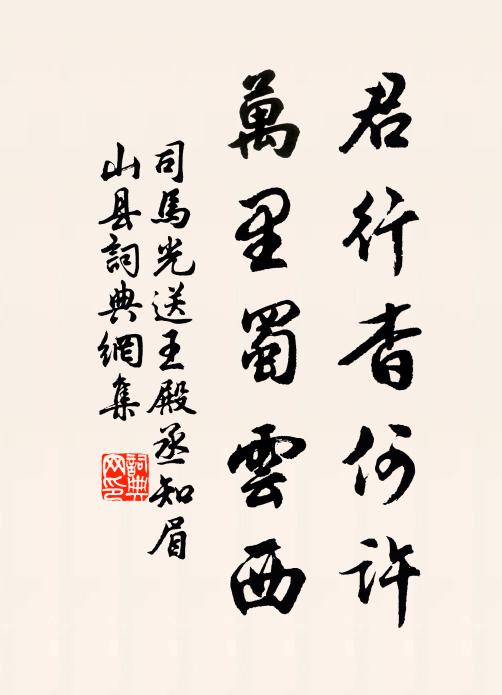 君行杳何許
萬里蜀雲西
司馬光送王殿丞知眉
山县詞典網集
詞典網印